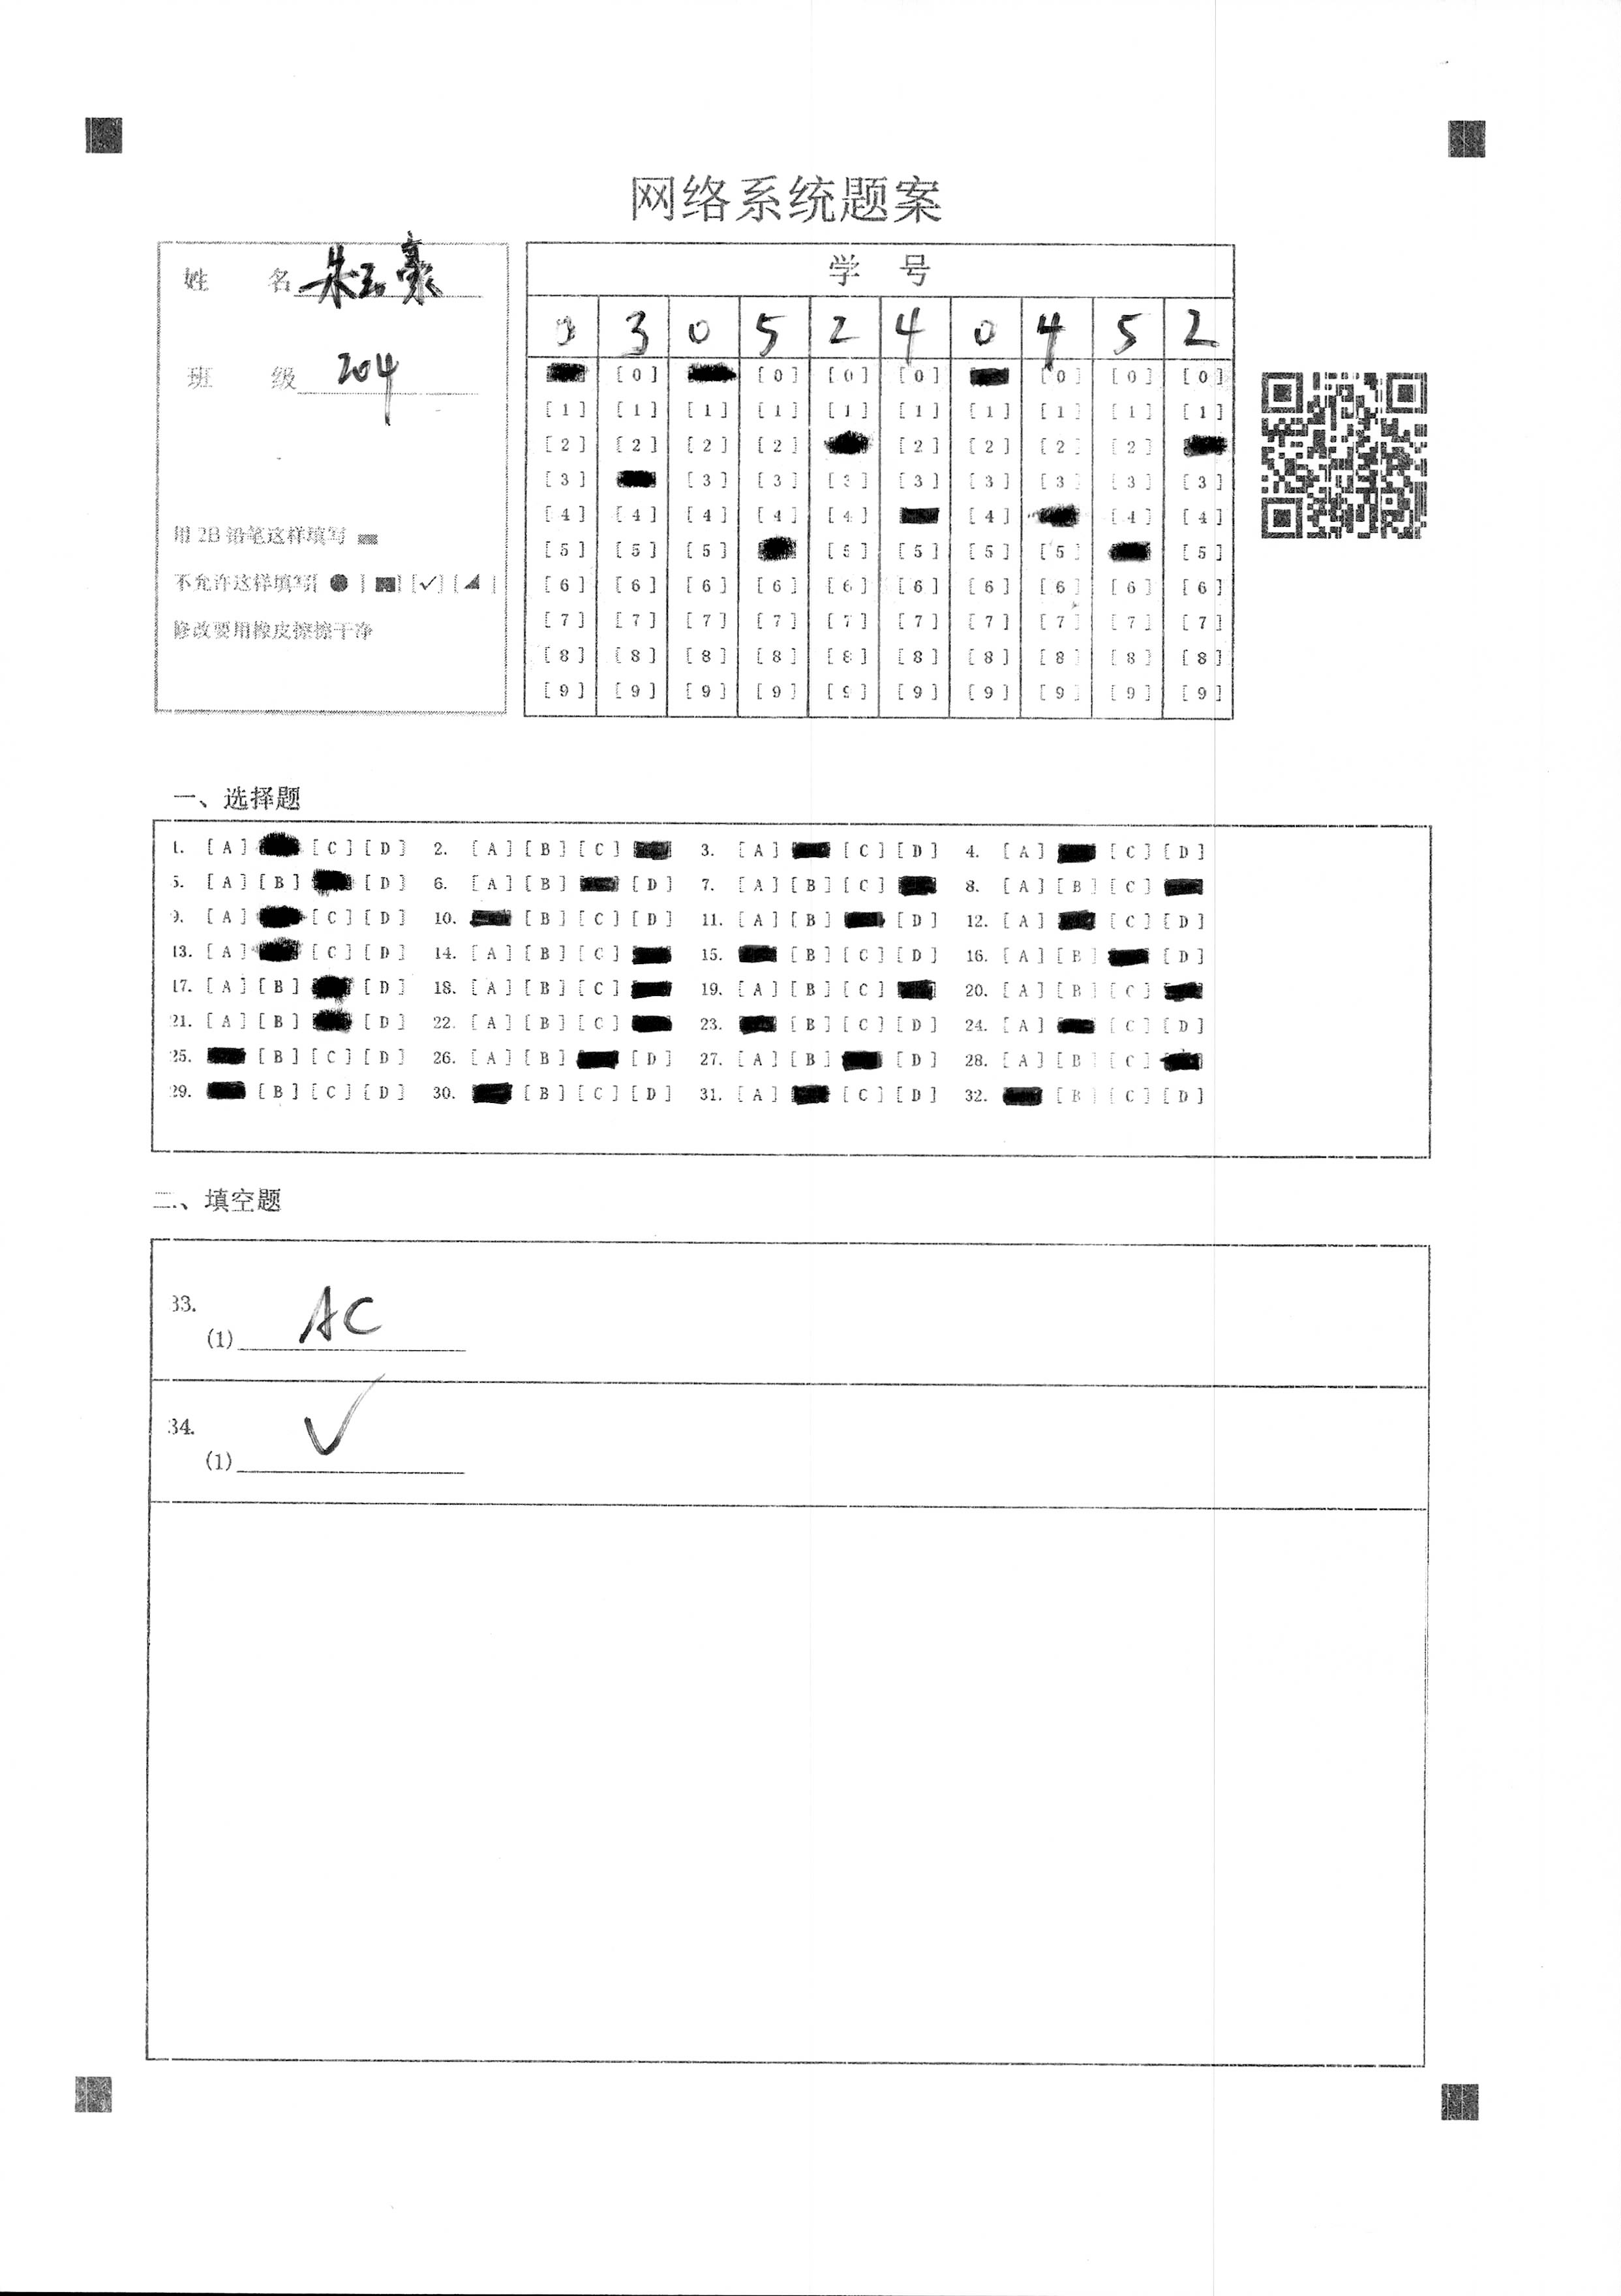 网络系统题案
姓 名 朱玉豪
班 级 204
用 2B 铅笔这样填写
不允许这样填写[ ● ] [ ■ ] [✓] [ ◢ ]
修改要用橡皮擦擦干净
学 号
3 0 5 2 4 0 4 5 2
[0] [0] [0] [0] [0] [0] [0]
[1] [1] [1] [1] [1] [1] [1] [1] [1] [1]
[2] [2] [2] [2] [2] [2] [2] [2]
[3] [3] [3] [3] [3] [3] [3] [3] [3]
[4] [4] [4] [4] [4] [4] [4] [4]
[5] [5] [5] [5] [5] [5] [5] [5]
[6] [6] [6] [6] [6] [6] [6] [6] [6] [6]
[7] [7] [7] [7] [7] [7] [7] [7] [7] [7]
[8] [8] [8] [8] [8] [8] [8] [8] [8] [8]
[9] [9] [9] [9] [9] [9] [9] [9] [9] [9]
一、选择题
1. [A] [C] [D] 2. [A] [B] [C] 3. [A] [C] [D] 4. [A] [C] [D]
5. [A] [B] [D] 6. [A] [B] [D] 7. [A] [B] [C] 8. [A] [B] [C]
9. [A] [C] [D] 10. [B] [C] [D] 11. [A] [B] [D] 12. [A] [C] [D]
13. [A] [C] [D] 14. [A] [B] [C] 15. [B] [C] [D] 16. [A] [B] [D]
17. [A] [B] [D] 18. [A] [B] [C] 19. [A] [B] [C] 20. [A] [B] [C]
21. [A] [B] [D] 22. [A] [B] [C] 23. [B] [C] [D] 24. [A] [C] [D]
25. [B] [C] [D] 26. [A] [B] [D] 27. [A] [B] [D] 28. [A] [B] [C]
29. [B] [C] [D] 30. [B] [C] [D] 31. [A] [C] [D] 32. [B] [C] [D]
二、填空题
33.
(1) AC
34.
(1) ✓